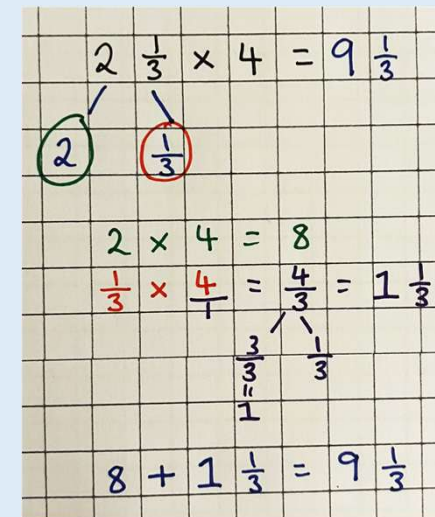 2 1/3 × 4 = 9 1/3
2 1/3
2 × 4 = 8
1/3 × 4/1 = 4/3 = 1 1/3
3/3 1/3
=
1
8 + 1 1/3 = 9 1/3